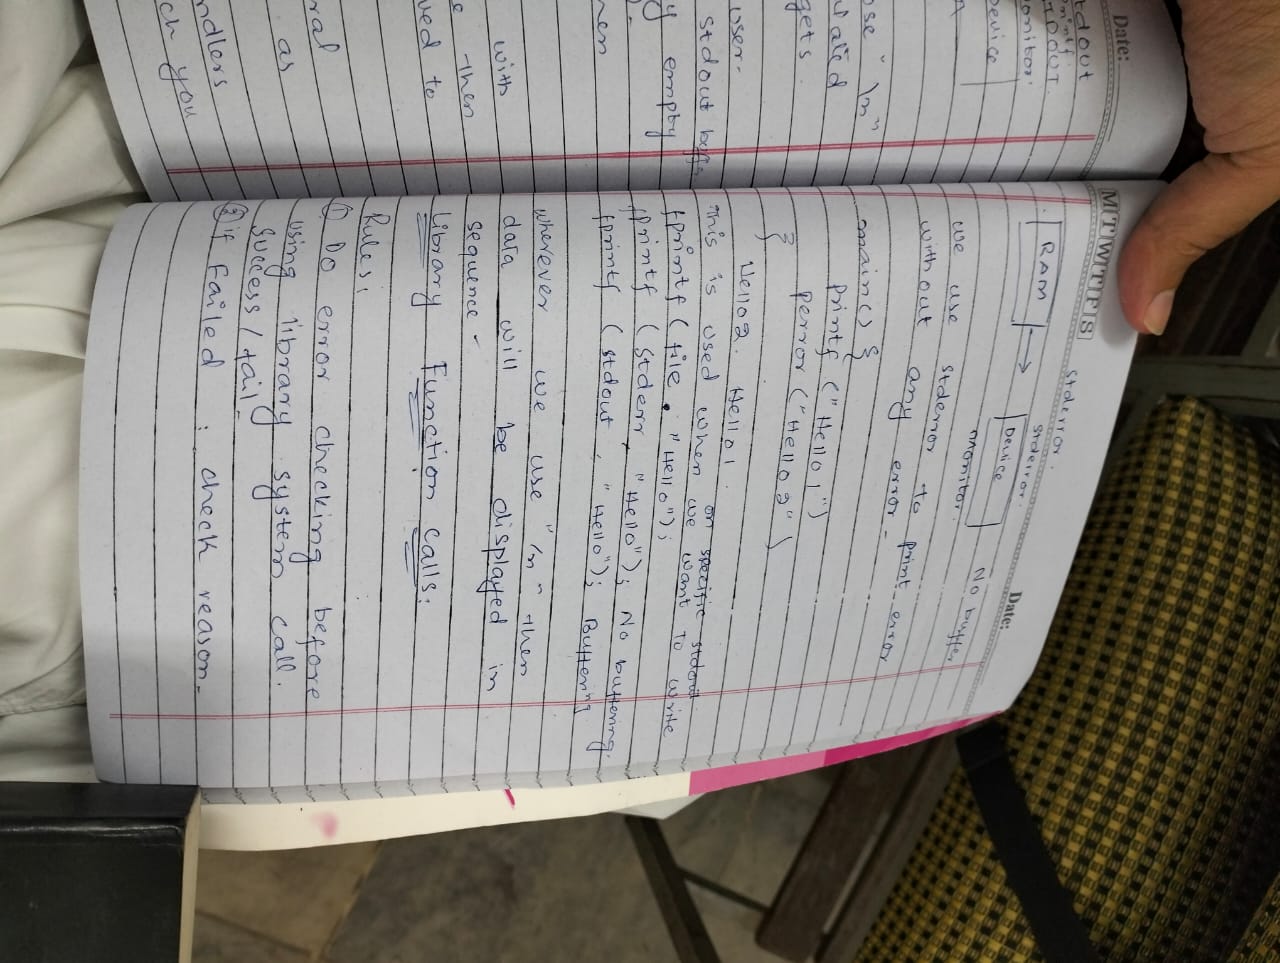 Date:
tdout
printf
TDOUT.
onitor.
Device
ose "\n"
ulated
gets
user.
stdout
y empty
hen
with
e then
ved to
ral
as
ndlers
ch you
M T W T F S
Stderror.
Date:
RAM
stderror.
Device
Monitor.
No buffer
we use stderror to print error
without any error.
main() {
printf ("Hello1")
perror ("Hello2")
}
Hello2. Hello1.
on specific stdout
This is used when we want to write
fprintf (file, "Hello");
fprintf (stderr, "Hello"); No buffering.
fprintf (stdout, "Hello"); Buffering
wherever we use "/n" then
data will be displayed in
sequence -
Library Function calls:
Rules:
① Do error checking before
using library system call.
Success / fail.
② if Failed : check reason.